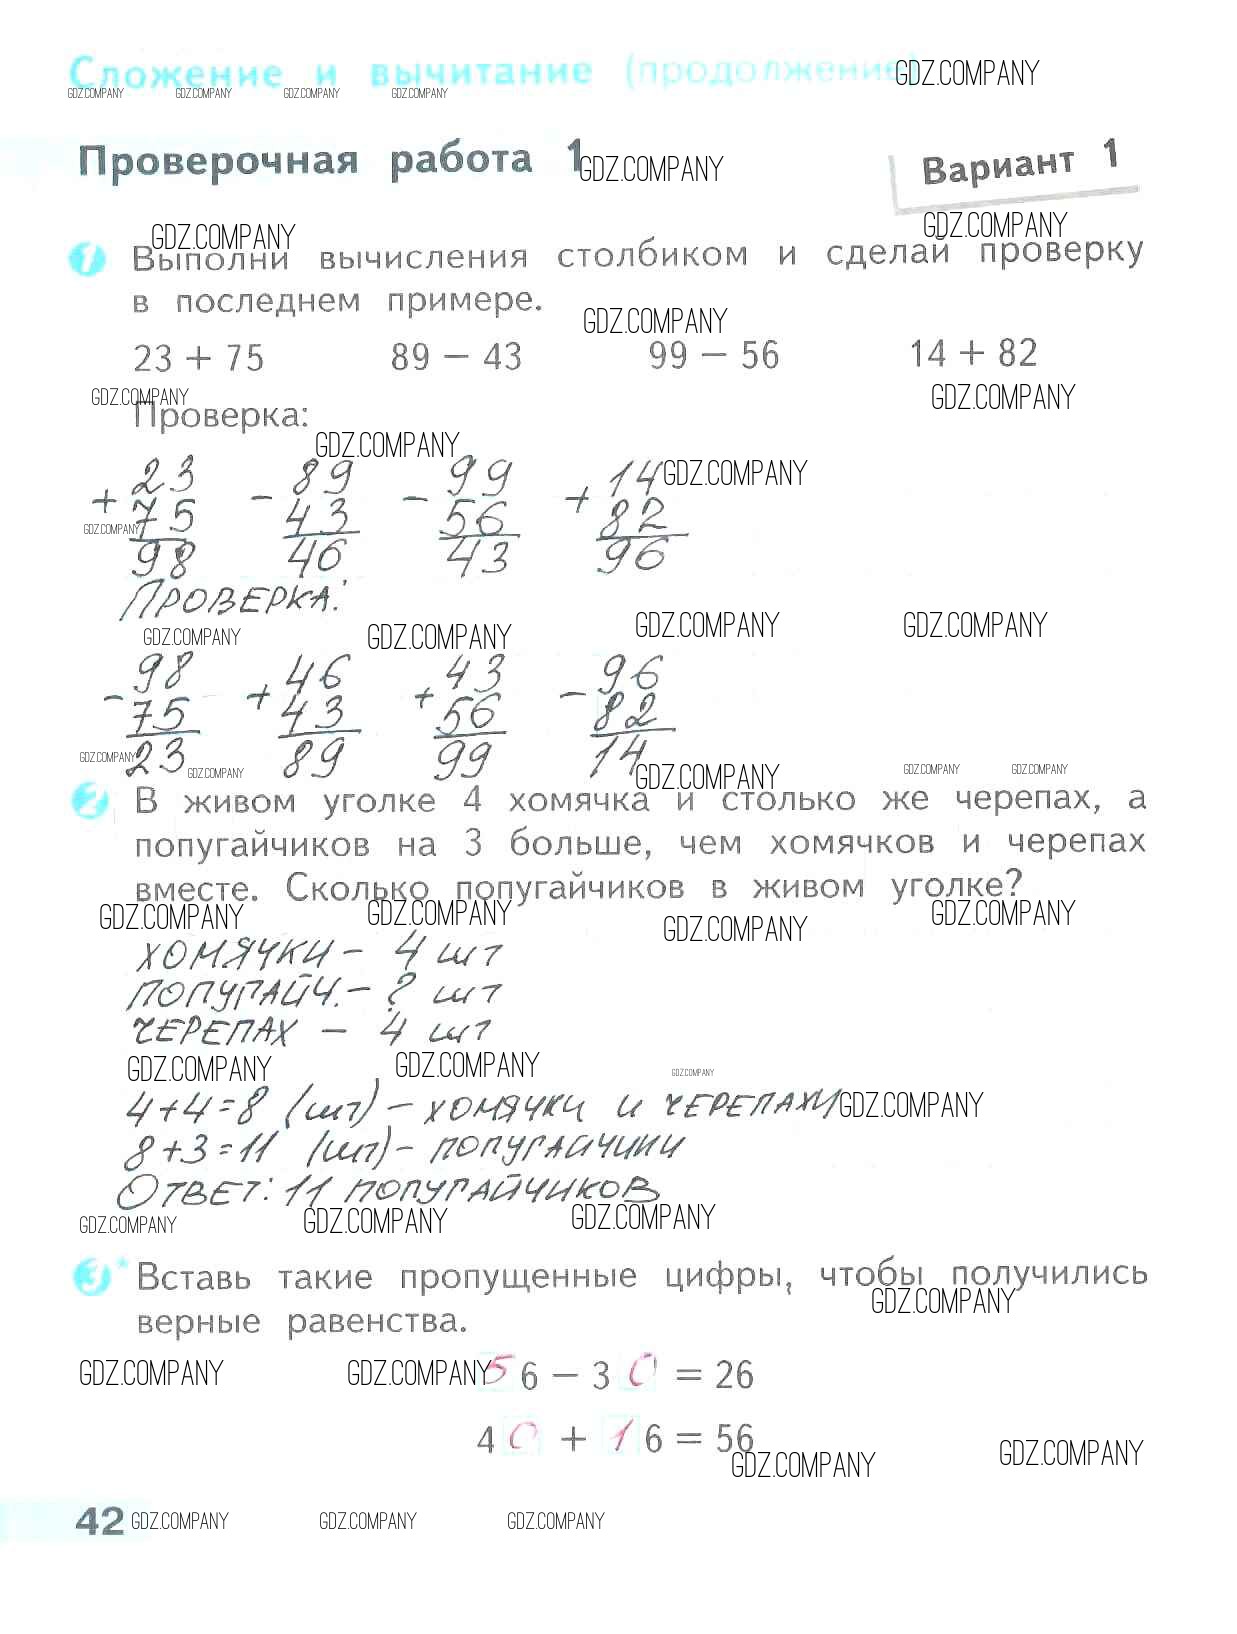 Сложение и вычитание (продолжение)
GDZ.COMPANY
GDZ.COMPANY GDZ.COMPANY GDZ.COMPANY GDZ.COMPANY
Проверочная работа 1
GDZ.COMPANY
Вариант 1
GDZ.COMPANY GDZ.COMPANY
1 Выполни вычисления столбиком и сделай проверку
в последнем примере.
GDZ.COMPANY
23 + 75 89 − 43 99 − 56 14 + 82
GDZ.COMPANY GDZ.COMPANY
Проверка:
GDZ.COMPANY GDZ.COMPANY
23 89 99 14
+ − − +
75 43 56 82
GDZ.COMPANY
98 46 43 96
ПРОВЕРКА:
GDZ.COMPANY GDZ.COMPANY GDZ.COMPANY GDZ.COMPANY
98 46 43 96
− + + −
75 43 56 82
23 89 99 14
GDZ.COMPANY GDZ.COMPANY GDZ.COMPANY GDZ.COMPANY GDZ.COMPANY
2 В живом уголке 4 хомячка и столько же черепах, а
попугайчиков на 3 больше, чем хомячков и черепах
вместе. Сколько попугайчиков в живом уголке?
GDZ.COMPANY GDZ.COMPANY GDZ.COMPANY GDZ.COMPANY
ХОМЯЧКИ – 4 шт
ПОПУГАЙЧ. – ? шт
ЧЕРЕПАХ – 4 шт
GDZ.COMPANY GDZ.COMPANY GDZ.COMPANY
4+4=8 (шт) – ХОМЯЧКИ И ЧЕРЕПАХИ
GDZ.COMPANY
8+3=11 (шт) – ПОПУГАЙЧИКИ
ОТВЕТ: 11 ПОПУГАЙЧИКОВ
GDZ.COMPANY GDZ.COMPANY GDZ.COMPANY
3* Вставь такие пропущенные цифры, чтобы получились
GDZ.COMPANY
верные равенства.
GDZ.COMPANY GDZ.COMPANY
56 − 30 = 26
40 + 16 = 56
GDZ.COMPANY GDZ.COMPANY
42 GDZ.COMPANY GDZ.COMPANY GDZ.COMPANY